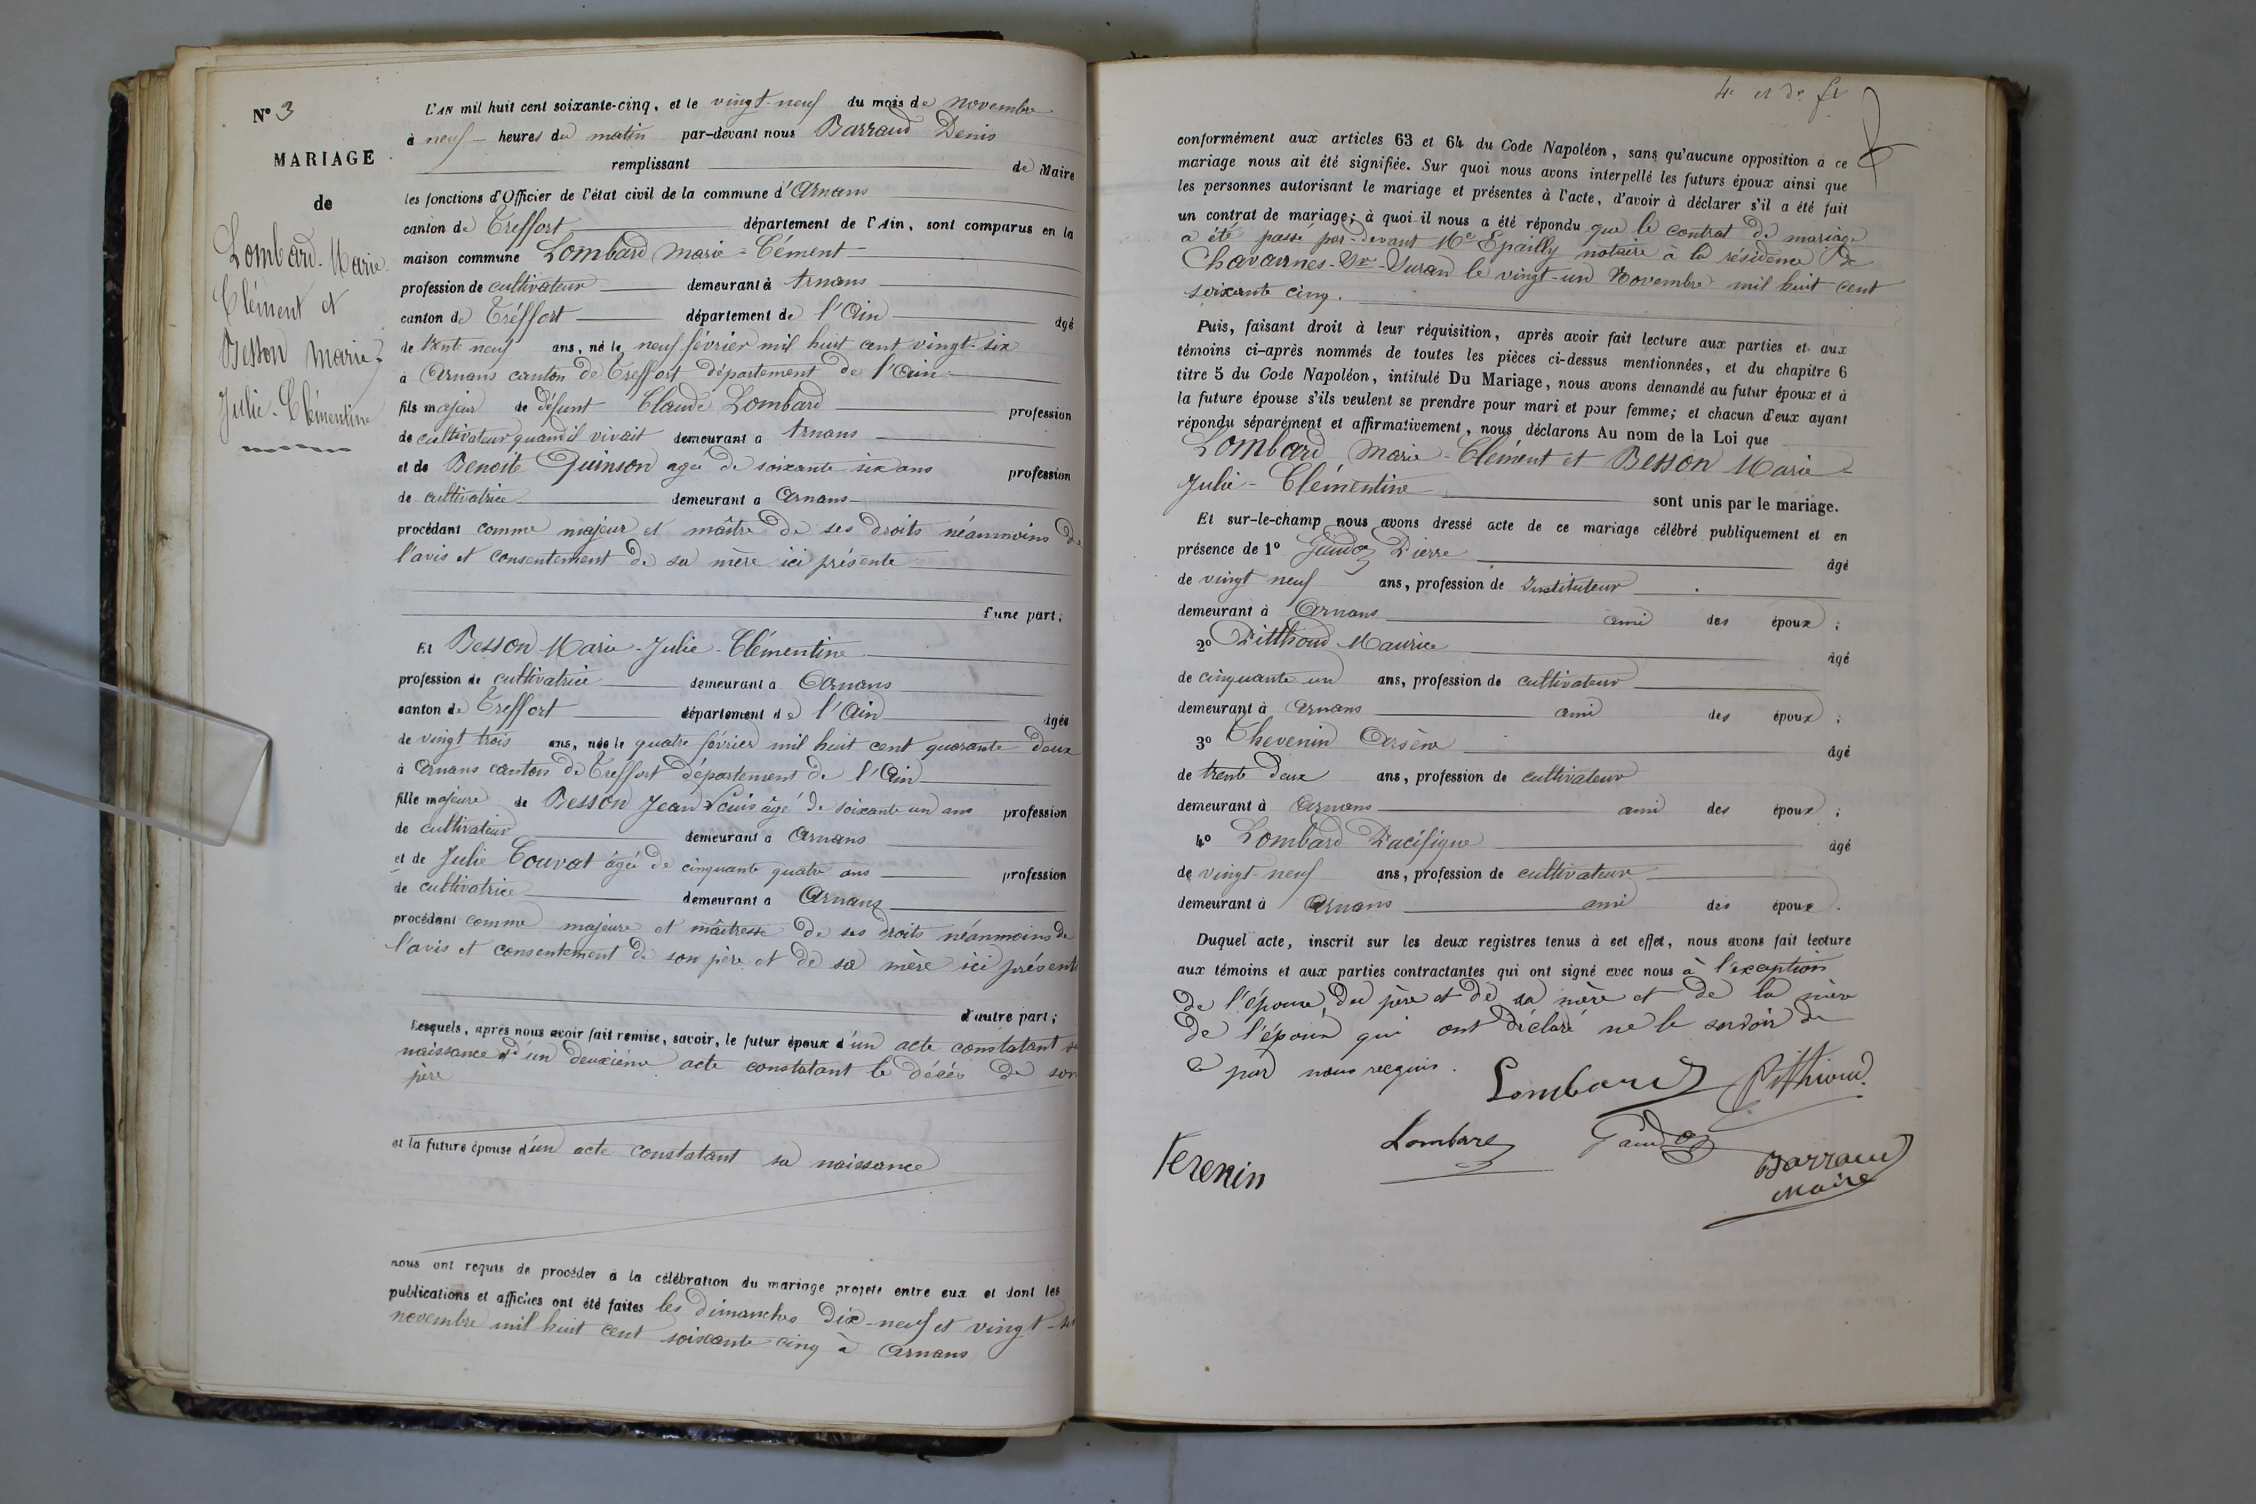 N° 3
MARIAGE
de
Lombard Marie
Clément et
Besson Marie
Julie-Clémentine
L'AN mil huit cent soixante-cinq, et le vingt-neuf du mois de novembre
à neuf heures du matin par-devant nous Barraud Denis
remplissant de Maire
les fonctions d'Officier de l'état civil de la commune d'Arnans
canton de Treffort département de l'Ain, sont comparus en la
maison commune Lombard Marie-Clément
profession de cultivateur demeurant à Arnans
canton de Treffort département de l'Ain âgé
de trente neuf ans, né le neuf février mil huit cent vingt-six
à Arnans canton de Treffort département de l'Ain
fils majeur de défunt Claude Lombard profession
de cultivateur quand il vivait demeurant à Arnans
et de Benoite Guinson agée de soixante six ans profession
de cultivatrice demeurant à Arnans
procédant comme majeur et maître de ses droits néanmoins de
l'avis et consentement de sa mère ici présente
d'une part;
Et Besson Marie-Julie-Clémentine
profession de cultivatrice demeurant à Arnans
canton de Treffort département de l'Ain âgée
de vingt trois ans, née le quatre février mil huit cent quarante deux
à Arnans canton de Treffort département de l'Ain
fille majeure de Besson Jean Louis âgé de soixante un ans profession
de cultivateur demeurant à Arnans
et de Julie Touvat âgée de cinquante quatre ans profession
de cultivatrice demeurant à Arnans
procédant comme majeure et maîtresse de ses droits néanmoins de
l'avis et consentement de son père et de sa mère ici présents
d'autre part;
Lesquels, après nous avoir fait remise, savoir, le futur époux d'un acte constatant sa
naissance d'un deuxième acte constatant le décès de son
père
et la future épouse d'un acte constatant sa naissance
nous ont requis de procéder à la célébration du mariage projeté entre eux et dont les
publications et affiches ont été faites les dimanches dix-neuf et vingt-six
novembre mil huit cent soixante-cinq à Arnans
conformément aux articles 63 et 64 du Code Napoléon, sans qu'aucune opposition à ce
mariage nous ait été signifiée. Sur quoi nous avons interpellé les futurs époux ainsi que
les personnes autorisant le mariage et présentes à l'acte, d'avoir à déclarer s'il a été fait
un contrat de mariage; à quoi il nous a été répondu que le contrat de mariage
a été passé par-devant Me Epailly notaire à la résidence de
Chavannes-Sr-Suran le vingt-un Novembre mil huit cent
soixante cinq.
Puis, faisant droit à leur réquisition, après avoir fait lecture aux parties et aux
témoins ci-après nommés de toutes les pièces ci-dessus mentionnées, et du chapitre 6
titre 5 du Code Napoléon, intitulé Du Mariage, nous avons demandé au futur époux et à
la future épouse s'ils veulent se prendre pour mari et pour femme; et chacun d'eux ayant
répondu séparément et affirmativement, nous déclarons Au nom de la Loi que
Lombard Marie-Clément et Besson Marie-
Julie-Clémentine sont unis par le mariage.
Et sur-le-champ nous avons dressé acte de ce mariage célébré publiquement et en
présence de 1° Gaudoz Pierre âgé
de vingt neuf ans, profession de Instituteur
demeurant à Arnans ami des époux;
2° Pitthioud Maurice âgé
de cinquante un ans, profession de cultivateur
demeurant à Arnans ami des époux;
3° Thevenin Arsène âgé
de trente deux ans, profession de cultivateur
demeurant à Arnans ami des époux;
4° Lombard Pacifique âgé
de vingt-neuf ans, profession de cultivateur
demeurant à Arnans ami des époux.
Duquel acte, inscrit sur les deux registres tenus à cet effet, nous avons fait lecture
aux témoins et aux parties contractantes qui ont signé avec nous à l'exception
de l'épouse, du père et de sa mère et de la mère
de l'époux qui ont déclaré ne le savoir de
ce par nous requis.
Lombard Pitthioud
Lombard Gaudoz
Tevenin
Barraud
Maire